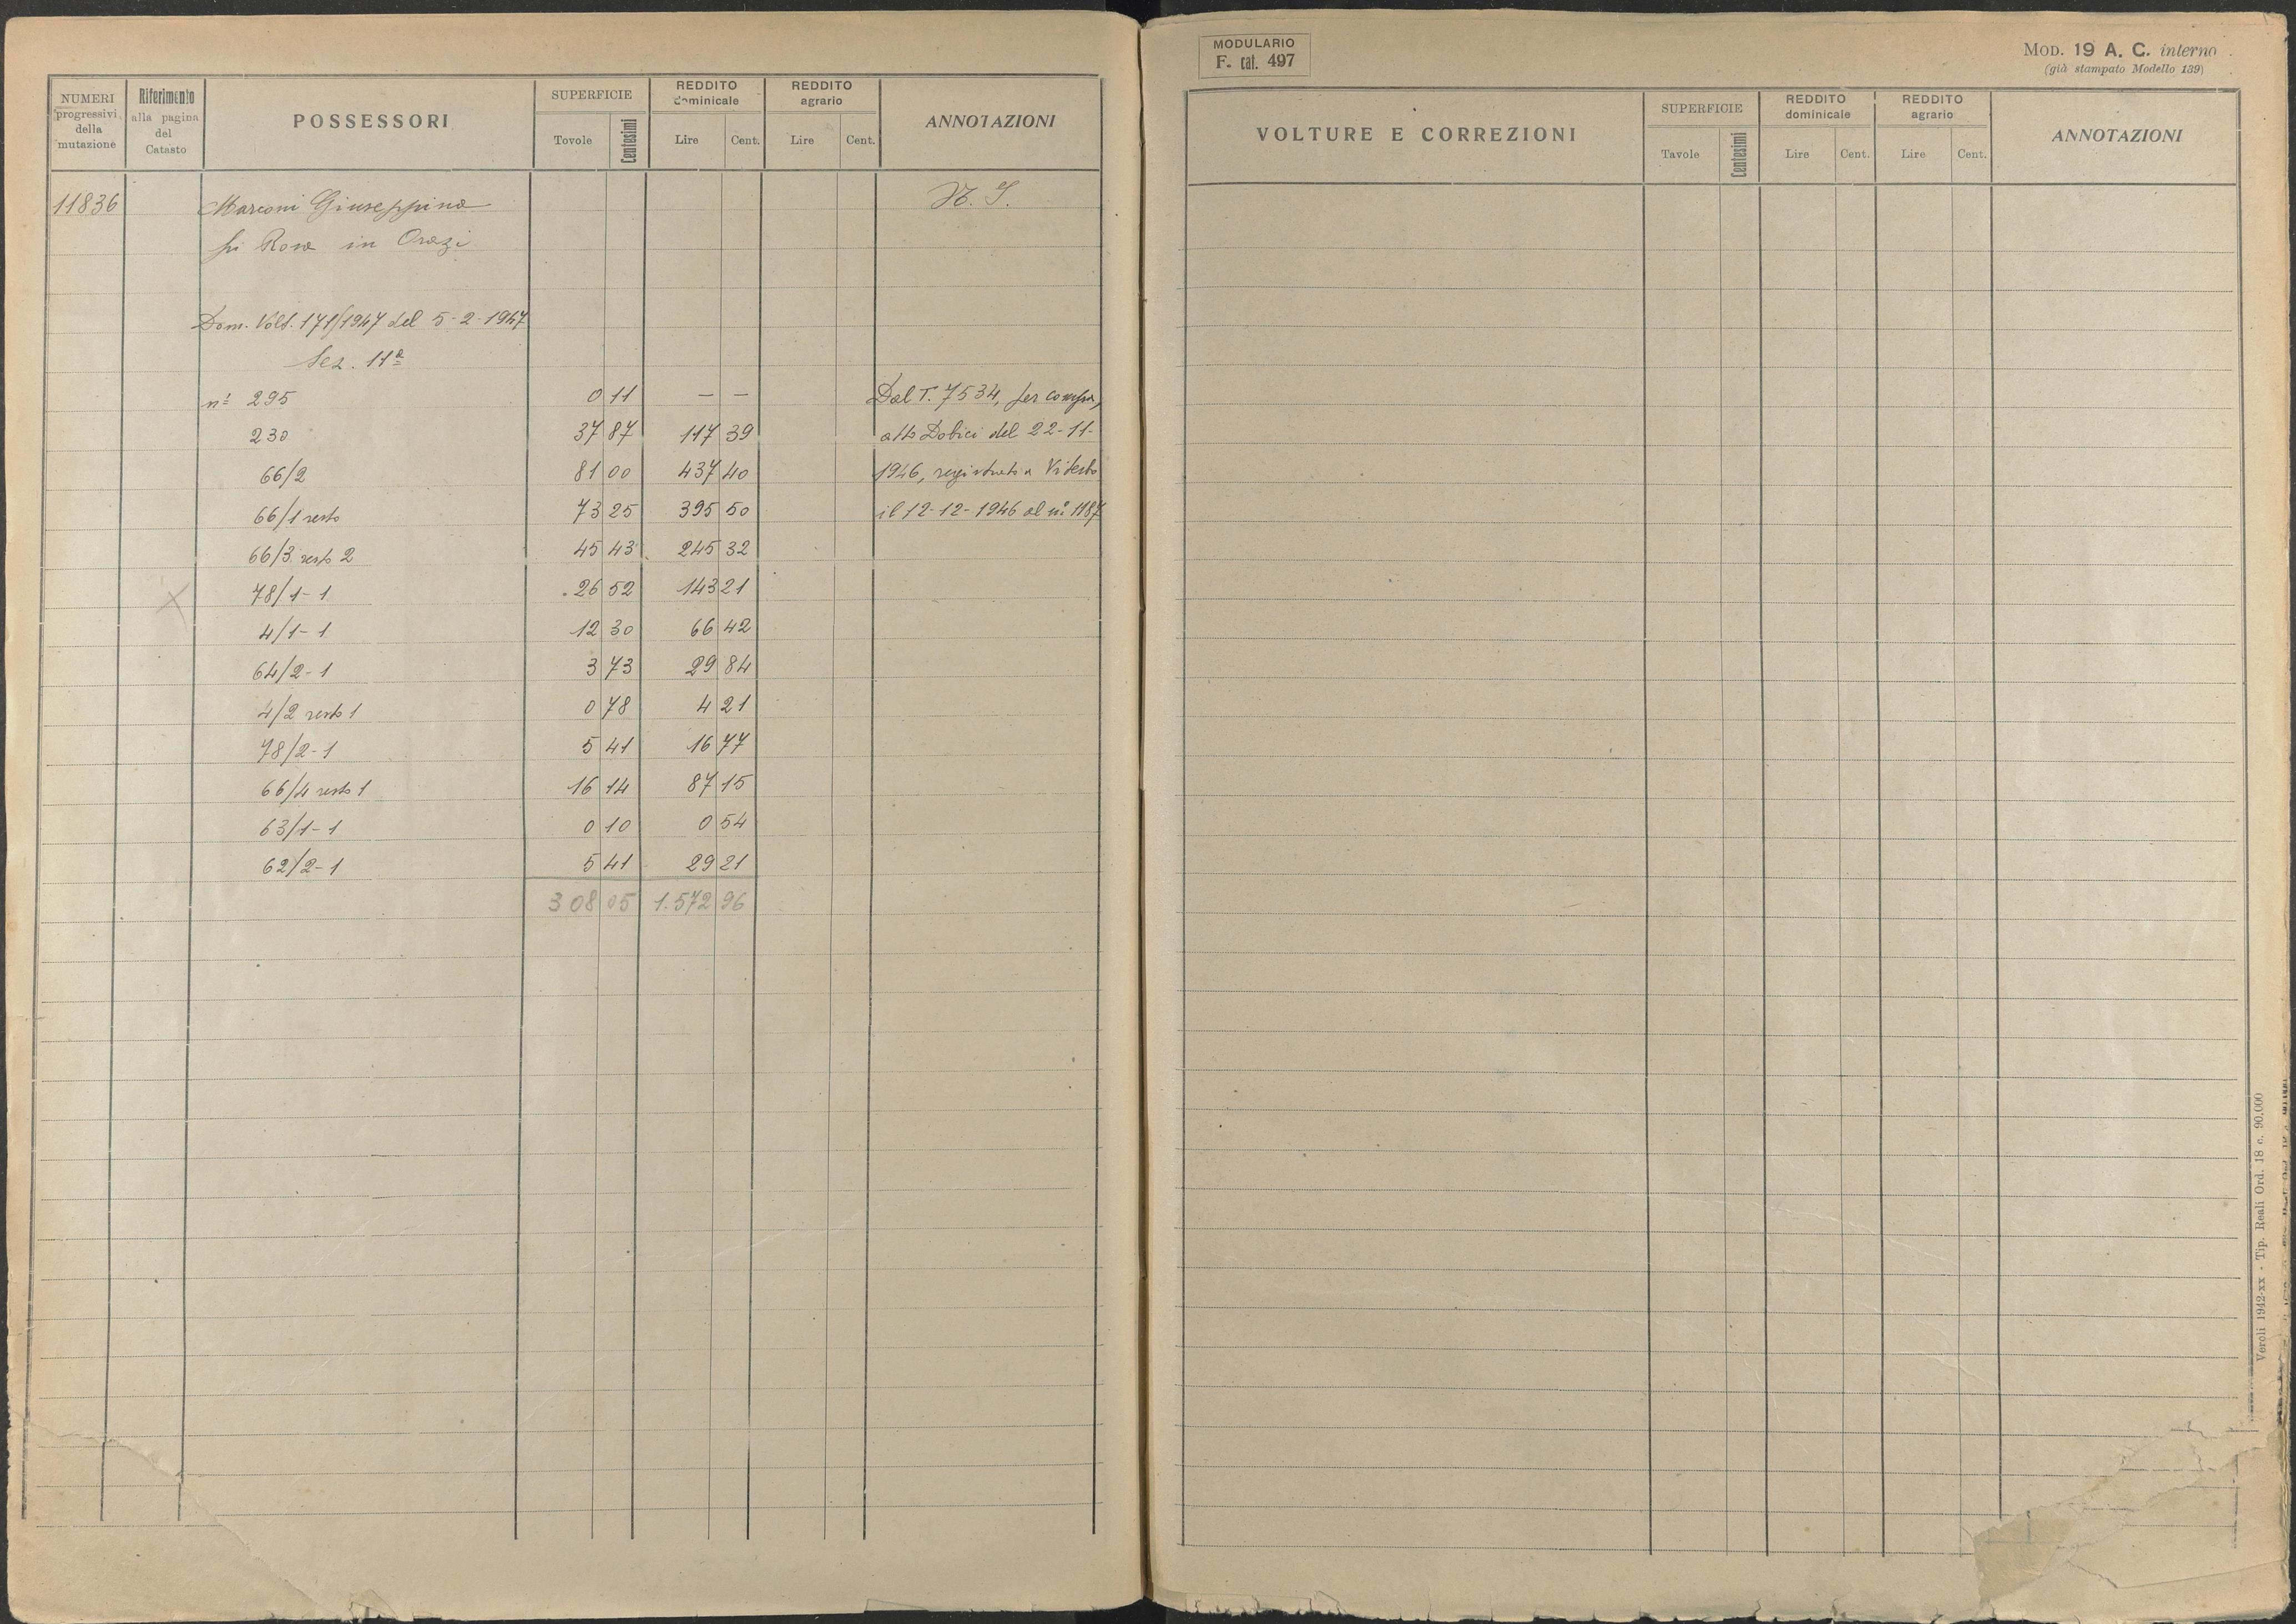 NUMERI progressivi della mutazione
Riferimento alla pagina del Catasto
POSSESSORI
SUPERFICIE
Tovole
Centesimi
REDDITO dominicale
Lire
Cent.
REDDITO agrario
Lire
Cent.
ANNOTAZIONI
11836 Marconi Giuseppina N. S.
fu Rosa in Orazi
Dom. Volt. 171/1947 del 5-2-1947
Sez. 11ª
nº 295 0 11 — — Dal T. 7534, per compra,
230 37 87 117 39 atto Dobici del 22-11-
66/2 81 00 437 40 1946, registrato a Viterbo
66/1 resto 73 25 395 50 il 12-12-1946 al nº 1187
66/3 resto 2 45 43 245 32
78/1-1 26 52 143 21
4/1-1 12 30 66 42
64/2-1 3 73 29 84
4/2 resto 1 0 78 4 21
78/2-1 5 41 16 77
66/4 resto 1 16 14 87 15
63/1-1 0 10 0 54
62/2-1 5 41 29 21
308 05 1.572 96
MODULARIO
F. cat. 497
MOD. 19 A. C. interno
(già stampato Modello 139)
VOLTURE E CORREZIONI
SUPERFICIE
Tavole
Centesimi
REDDITO dominicale
Lire
Cent.
REDDITO agrario
Lire
Cent.
ANNOTAZIONI
Veroli 1942-xx - Tip. Reali Ord. 18 c. 90.000